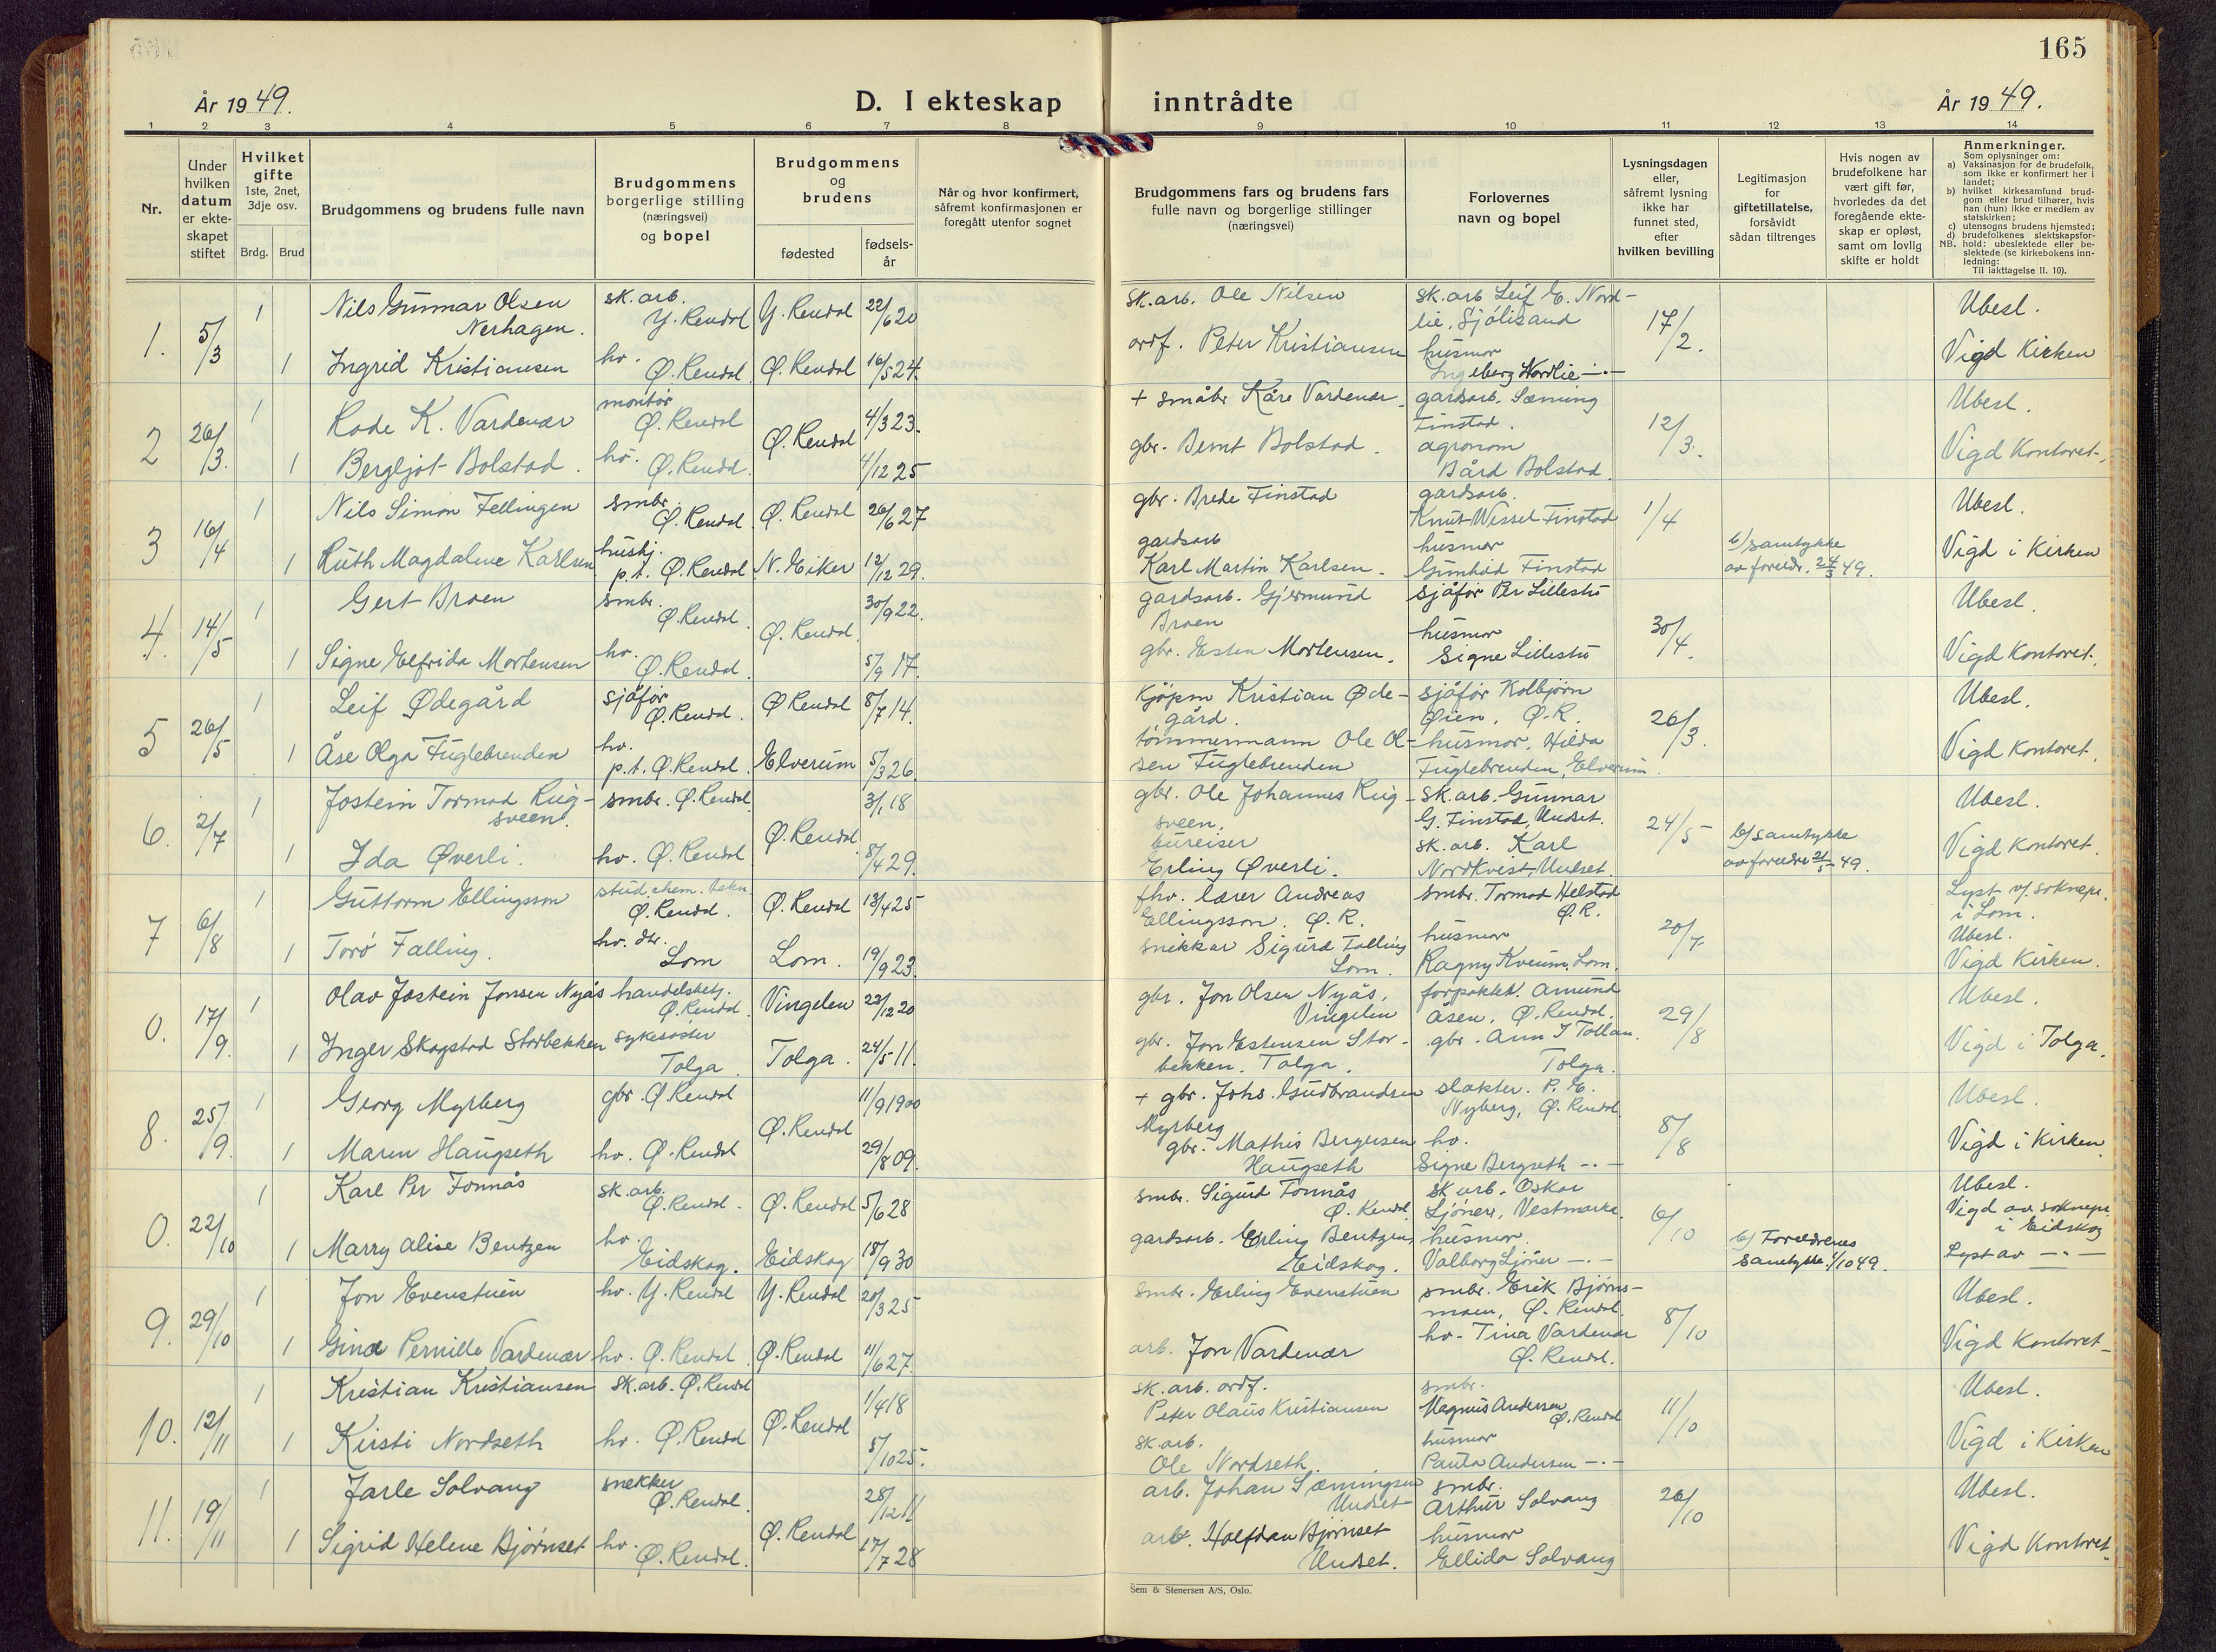 165
År 1949.
D. I ekteskap inntrådte
År 1949.
1 2 3 4 5 6 7 8 9 10 11 12 13 14
Nr.
Under hvilken datum er ekte-skapet stiftet
Hvilket gifte 1ste, 2net, 3dje osv.
Brdg. Brud
Brudgommens og brudens fulle navn
Brudgommens borgerlige stilling (næringsvei) og bopel
Brudgommens og brudens
fødested
fødsels-år
Når og hvor konfirmert, såfremt konfirmasjonen er foregått utenfor sognet
Brudgommens fars og brudens fars fulle navn og borgerlige stillinger (næringsvei)
Forlovernes navn og bopel
Lysningsdagen eller, såfremt lysning ikke har funnet sted, efter hvilken bevilling
Legitimasjon for giftetillatelse, forsåvidt sådan tiltrenges
Hvis nogen av brudefolkene har vært gift før, hvorledes da det foregående ekte-skap er opløst, samt om lovlig skifte er holdt
Anmerkninger.
Som oplysninger om:
a) Vaksinasjon for de brudefolk, som ikke er konfirmert her i landet;
b) hvilket kirkesamfund brud-gom eller brud tilhører, hvis han (hun) ikke er medlem av statskirken;
c) utensogns brudens hjemsted;
d) brudefolkenes slektskapsfor-hold: ubeslektede eller be-slektede (se kirkebokens inn-ledning:
NB. Til iakttagelse II. 10).
1. 5/3 1 Nils Gunnar Olsen Nerhagen. sk. arb. Y. Rendal Y. Rendal 22/6 20 sk. arb. Ole Nilsen sk. arb Leif E. Nord-lie, Sjølisand 17/2. Ubesl.
1 Ingrid Kristiansen hv. Ø. Rendal Ø. Rendal 16/5 24. ordf. Peter Kristiansen husmor Ingeberg Nordlie -"- Vigd Kirken
2 26/3. 1 K. Vardenær montør Ø. Rendal Ø. Rendal 4/3 23. + småbr. Kåre Vardenær gardsarb. Sæming Finstad. 12/3. Ubesl.
1 Bergljot Bolstad. hv. Ø. Rendal. 4/12 25 gbr. Bernt Bolstad. agronom Bård Bolstad. Vigd Kontoret.
3 16/4 1 Nils Simon Fellingen smbr. Ø. Rendal Ø. Rendal 26/6 27 gbr. Brede Finstad gardsarb. Knut Wessel Finstad 1/4 Ubesl.
1 Ruth Magdalene Karlsen hushj. p.t. Ø. Rendal N. Eiker 12/12 29. gardsarb Karl Martin Karlsen. husmor Finstad b/ samtykke av foreldr. 49. Vigd i Kirken
4. 14/5 1 Gert Broen smbr. Ø. Rendal. Ø. Rendal. 30/9 22. gardsarb. Gjermund Broen sjåfør Per Lillestu 30/4. Ubesl.
1 Signe Elfrida Mortensen hv. Ø. Rendal. 5/9 17. gbr. Esten Mortensen. husmor Signe Lillestu Vigd Kontoret.
5 26/5 1 Leif Ødegård sjåfør Ø. Rendal. Ø Rendal 8/7 14. Kjøpm Kristian Øde-gård. sjåfør Kolbjørn Øien, Ø.R. 26/3. Ubesl.
1 Åse Olga Fuglebrenden hv. p.t. Ø. Rendal. Elverum 5/3 26. tømmermann Ole Ol-sen Fuglebrenden husmor, Hilda Fuglebrenden, Elverum. Vigd Kontoret.
6. 2/7 1 Jostein Tormod Rug-sveen. smbr. Ø. Rendal Ø. Rendal 3/1 18 gbr. Ole Johannes Rug-sveen. sk. arb. Gunnar G. Finstad, Undset. 24/5 Ubesl.
1 Ida Øverli. hv. Ø. Rendal 8/4 29. bureiser Erling Øverli. sk. arb. Karl Nordkvist, Undset. b/ samtykke av foreldre 21/5 49. Vigd Kontoret.
7 6/8 1 Guttorm Ellingsson stud. chem. tekn Ø. Rendal. Ø. Rendal 13/4 25 fhv. lærer Andreas Ellingsson. Ø. R. smbr. Tormod Helstad Ø. R. 20/7 Lyst v/ soknepr. i Lom.
1 Torø Falling. hv. dtr. Lom Lom. 19/9 23. snekker Sigurd Falling Lom. husmor Ragny Kveum, Lom. Ubesl. Vigd Kirken.
0. 17/9. 1 Olav Jostein Jonsen Nyås handelsbetj. Ø. Rendal Vingelen 22/12 20 gbr. Jon Olsen Nyås, Vingelen forpakter. Amund Åsen, Ø. Rendal. 29/8 Ubesl.
1 Inger Skogstad Storbekken sykesøster Tolga. Tolga. 24/5 11. gbr. Jon Estensen Stor-bekken. Tolga. gbr. Tollan. Tolga. Vigd i Tolga.
8. 25/9. 1 Georg Myrberg gbr. Ø. Rendal Ø. Rendal 11/9 1900 + gbr. Johs. Gudbrandsen Myrberg slakter. P. E. Nyberg, Ø. Rendal 8/8 Ubesl.
1 Maren Haugseth hv. Ø. Rendal 29/8 09. gbr. Mathis Bergersen Haugseth hv. Signe Bergseth -"- Vigd i Kirken.
0. 22/10 1 Karl Per Fonnås sk. arb. Ø. Rendal. Ø. Rendal 5/6 28 smbr. Sigurd Fonnås Ø. Rendal. sk arb. Oskar Sjøner, Vestmarka. 6/10 Ubesl. Vigd av soknepr. i Eidskog
1 Marry Alise Bentzen hv. Eidskog. Eidskog 18/9 30 gardsarb. Erling Bentzen, Eidskog. husmor. Valborg Sjøner -"- b/ Foreldrenes samtykke 1/10 49. Lyst av -"-
9. 29/10 1 Jon Evenstuen hv. Y. Rendal Y. Rendal 20/3 25 smbr. Erling Evenstuen smbr. Erik Bjørns-moen, Ø. Rendal. 8/10 Ubesl.
1 Gina Pernille Vardenær hv. Ø. Rendal Ø. Rendal 11/6 27. arb. Jon Vardenær hv. Tina Vardenær Ø. Rendal. Vigd Kontoret
10. 12/11 1 Kristian Kristiansen sk. arb. Ø. Rendal Ø. Rendal 1/4 18 sk. arb. ordf. Peter Olaus Kristiansen smbr. Magnus Andersen Ø. Rendal 11/10 Ubesl.
1 Kirsti Nordseth hv. Ø. Rendal 5/10 25. sk. arb. Ole Nordseth. husmor Paula Andersen -"- Vigd i Kirken
11. 19/11 1 Jarle Solvang snekker Ø. Rendal. Ø. Rendal 28/12 11 arb. Johan Sæmingsen Undset smbr. Arthur Solvang 26/10 Ubesl.
1 Sigrid Helene Bjørnset hv. Ø. Rendal. 17/7 28 arb. Halfdan Bjørnset Undset. husmor Ellida Solvang Vigd Kontoret.
Sem & Stenersen A/S, Oslo.